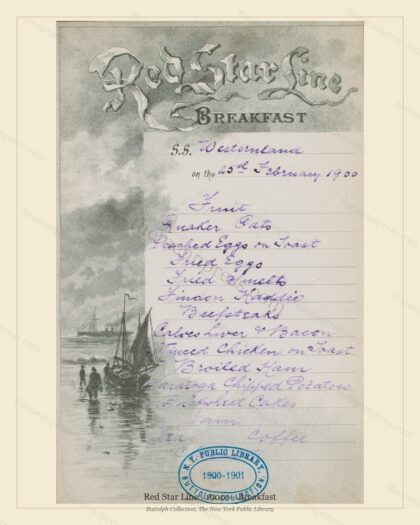 Red Star Line
BREAKFAST
S.S. Westernland
on the 25th February 1900
Fruit
Quaker Oats
Poached Eggs on Toast
Fried Eggs
Fried Smelts
Findon Haddie
Beefsteaks
Calves Liver & Bacon
Minced Chicken on Toast
Broiled Ham
Saratoga Chipped Potatoes
Buckwheat Cakes
Jam
Coffee
N.Y. PUBLIC LIBRARY
1900-1901
Red Star Line Breakfast
Buttolph Collection, The New York Public Library